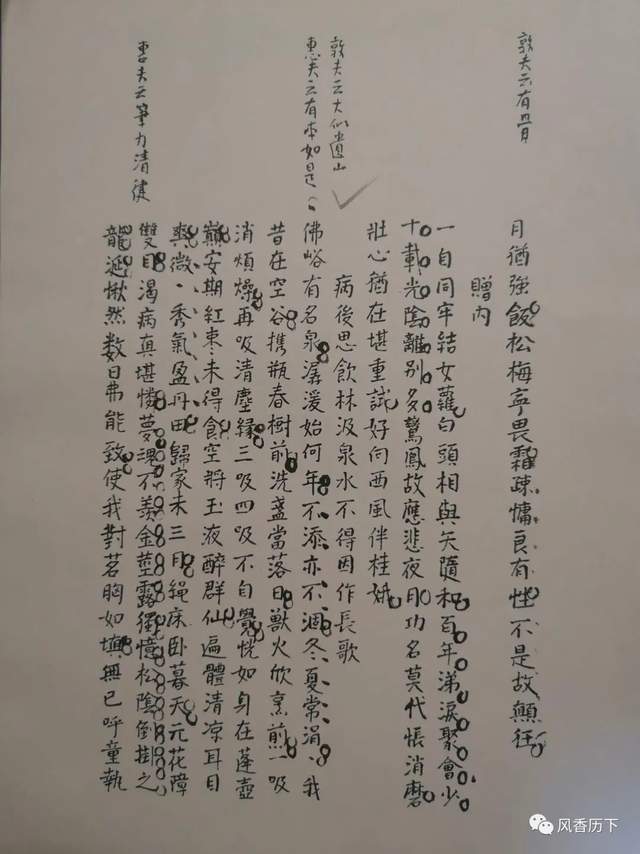 敦夫云有骨
月猶強飯松梅寧畏霜疎慵良有性不是故顛狂
贈內
一自同牢結女蘿白頭相與矢隨和百年涕淚聚會少
十載光陰離別多鸞鳳故應悲夜月功名莫代悵消磨
壯心猶在堪重試好向西風伴桂娥
病後思飲林汲泉水不得因作長歌
敦夫云大似遺山
惠夫云有本如是
佛峪有名泉潺湲始何年不添亦不涸冬夏常涓、我
昔在空谷携瓶春樹前洗盞當落日獸火欣烹煎一吸
消煩燥再吸清塵緣三吸四吸不自覺恍如身在蓬壺
巔安期紅棗未得食空將玉液醉群仙遍體清凉耳目
爽微、秀氣盈丹田歸家未三月繩床卧暮天元花障
雙目渴病真堪憐夢魂不羨金莖露徒憶松陰倒掛之
龍涎愀然数日弗能致使我對茗胸如填無已呼童執
惠夫云筆力清健
风香历下